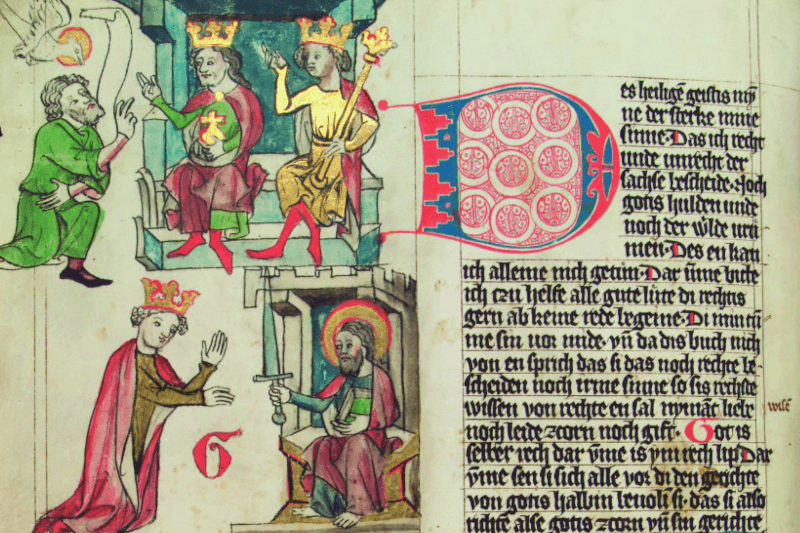 Des heiligē geistis mȳ
ne der sterke mine
sinne. Das ich recht
unde unrecht der
sachse bescheide. Noch
gotis hulden unde
noch der w̄lde vru
men. Des en kan
ich alleine nich getun. Dar ūme bite
ich czu helfe alle gute lute di rechtis
gern ab keine rede begeine. Di min tū
me sin vor mide. vn̄ da dis buch nich
von en sprich das si das noch rechte be
scheiden noch irme sinne so sis rechste
wissen von rechte en sal nymāt liebe
noch leide zcorn noch gift. Got is
selber rech dar ūme is ym rech lip. Dar
ūme sen si sich alle vor di den gerichte
von gotis halbin bevoln si. das si also
richte alse gotis zcorn vn̄ sin gerichte
G